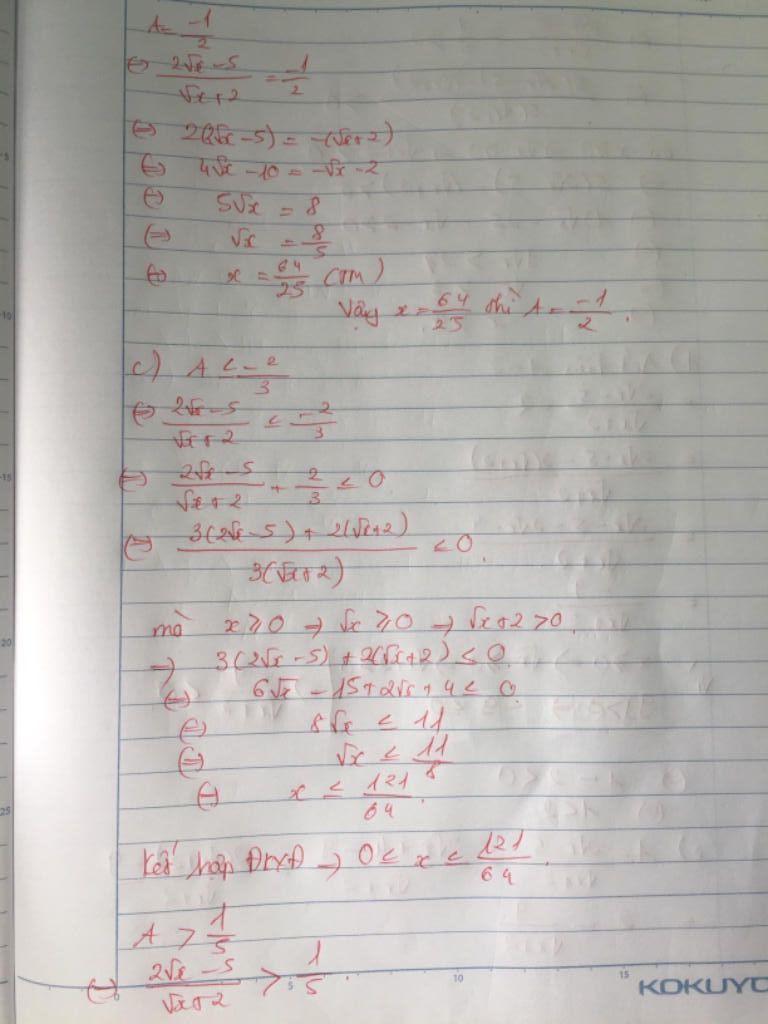 A = -1/2
⇔ (2√x - 5)/(√x + 2) = -1/2
⇔ 2(2√x - 5) = -(√x + 2)
⇔ 4√x - 10 = -√x - 2
⇔ 5√x = 8
⇔ √x = 8/5
⇔ x = 64/25 (TM)
Vậy x = 64/25 thì A = -1/2.
c) A < -2/3
⇔ (2√x - 5)/(√x + 2) ≤ -2/3
⇔ (2√x - 5)/(√x + 2) + 2/3 ≤ 0
⇔ (3(2√x - 5) + 2(√x + 2))/(3(√x + 2)) < 0.
mà x ⩾ 0 → √x ⩾ 0 → √x + 2 > 0.
→ 3(2√x - 5) + 2(√x + 2) ≤ 0.
⇔ 6√x - 15 + 2√x + 4 ≤ 0
⇔ 8√x ≤ 11
⇔ √x ≤ 11/8
⇔ x ≤ 121/64.
Kết hợp ĐKXĐ → 0 ≤ x ≤ 121/64.
A > 1/5
⇔ (2√x - 5)/(√x + 2) > 1/5.
5
10
15
20
25
0 5 10 15
KOKUYO